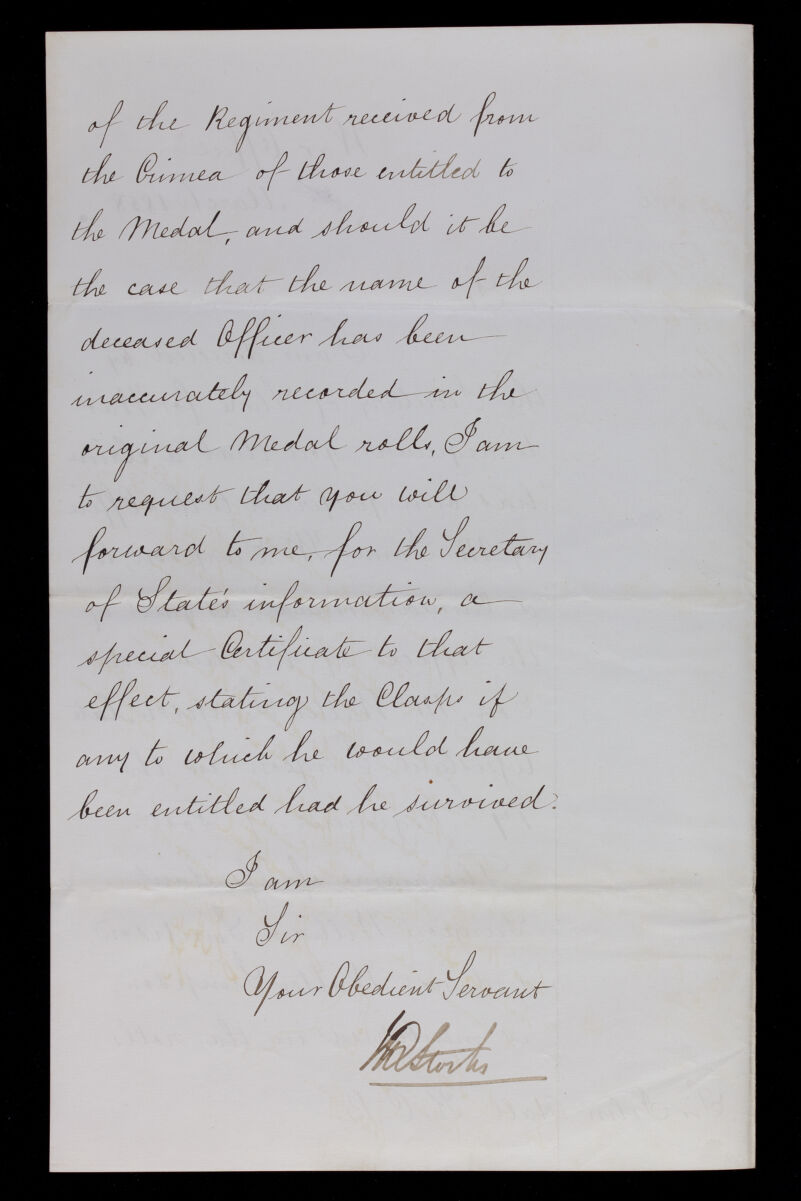 of the Regiment received from
the Crimea of those entitled to
the Medal, and should it be
the case that the name of the
deceased Officer has been
inaccurately recorded in the
original Medal rolls, I am
to request that you will
forward to me, for the Secretary
of State's information, a
special Certificate to that
effect, stating the Clasps if
any to which he would have
been entitled had he survived.
I am
Sir
Your Obedient Servant
HKStorks